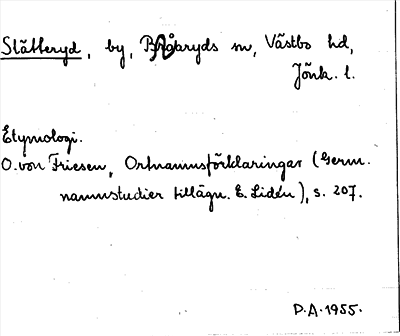 Slätteryd, by, Bråaryds sn, Västbo hd,
Jönk. l.
Etymologi.
O. von Friesen, Ortnamnsförklaringar (Germ.
namnstudier tillägn. E. Lidén), s. 207.
D.A. 1955.